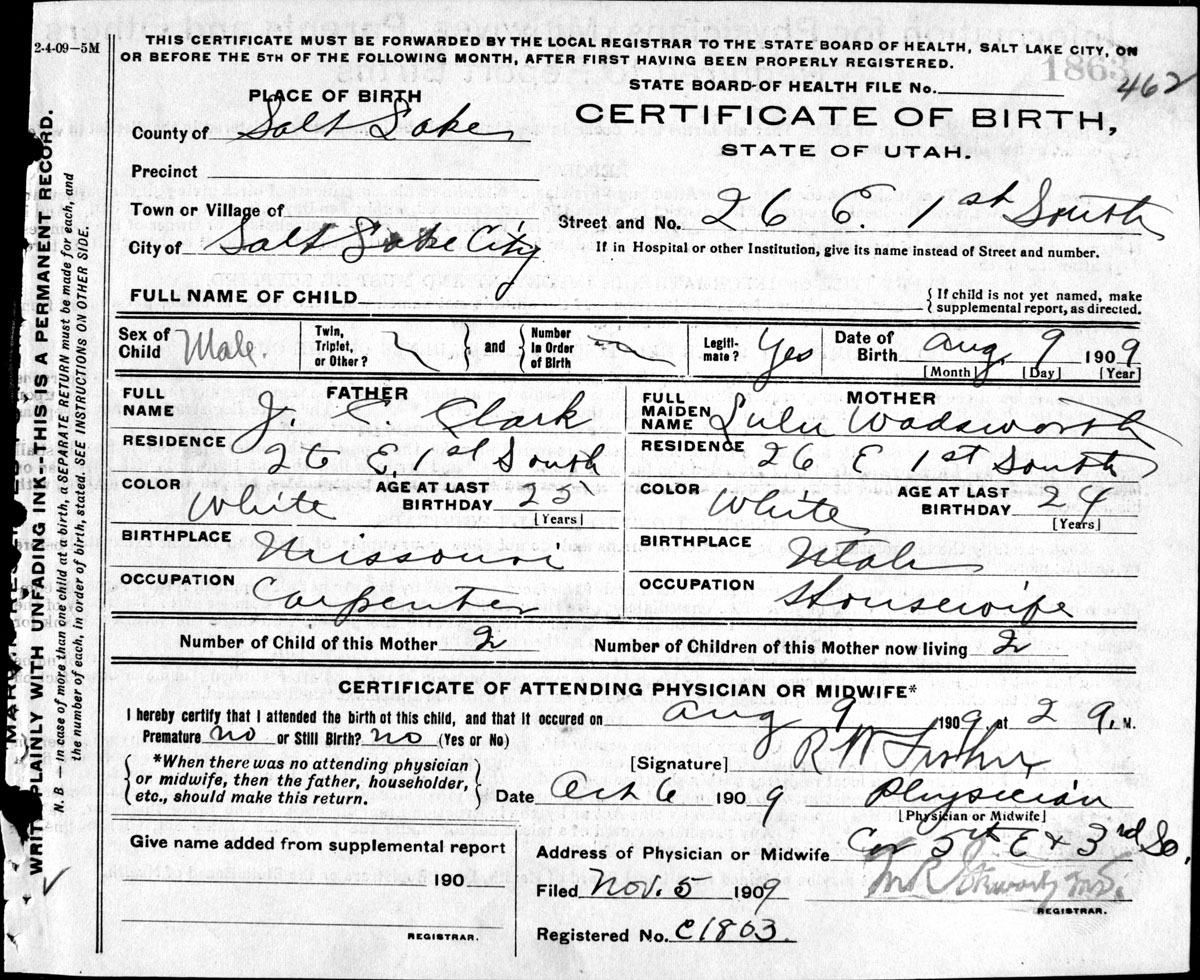 2-4-09-5M
THIS CERTIFICATE MUST BE FORWARDED BY THE LOCAL REGISTRAR TO THE STATE BOARD OF HEALTH, SALT LAKE CITY, ON
OR BEFORE THE 5TH OF THE FOLLOWING MONTH, AFTER FIRST HAVING BEEN PROPERLY REGISTERED.
1863
STATE BOARD OF HEALTH FILE No. 462
PLACE OF BIRTH
CERTIFICATE OF BIRTH,
STATE OF UTAH.
County of Salt Lake
Precinct
Town or Village of
Street and No. 26 E. 1st South
City of Salt Lake City
If in Hospital or other Institution, give its name instead of Street and number.
FULL NAME OF CHILD
{If child is not yet named, make
supplemental report, as directed.
Sex of Child Male. Twin, Triplet, or Other? and Number in Order of Birth Legiti-mate? Yes Date of Birth Aug 9 1909
[Month] [Day] [Year]
FATHER
FULL NAME J. E. Clark
RESIDENCE 26 E. 1st South
COLOR White AGE AT LAST BIRTHDAY 25
[Years]
BIRTHPLACE Missouri
OCCUPATION Carpenter
MOTHER
FULL MAIDEN NAME Lulu Wadsworth
RESIDENCE 26 E 1st South
COLOR White AGE AT LAST BIRTHDAY 24
[Years]
BIRTHPLACE Utah
OCCUPATION Housewife
Number of Child of this Mother 2 Number of Children of this Mother now living 2
CERTIFICATE OF ATTENDING PHYSICIAN OR MIDWIFE*
I hereby certify that I attended the birth of this child, and that it occured on Aug 9 1909 at 2 a. M.
Premature no or Still Birth? no (Yes or No)
*When there was no attending physician
or midwife, then the father, householder,
etc., should make this return.
[Signature] R W
Date Oct 6 1909 Physician
[Physician or Midwife]
Give name added from supplemental report
190
REGISTRAR.
Address of Physician or Midwife Cor 5th E & 3rd So.
Filed Nov. 5 1909 M.D.
REGISTRAR.
Registered No. C1863.
WRITE PLAINLY WITH UNFADING INK—THIS IS A PERMANENT RECORD.
N.B.—In case of more than one child at a birth, a SEPARATE RETURN must be made for each, and
the number of each, in order of birth, stated. SEE INSTRUCTIONS ON OTHER SIDE.